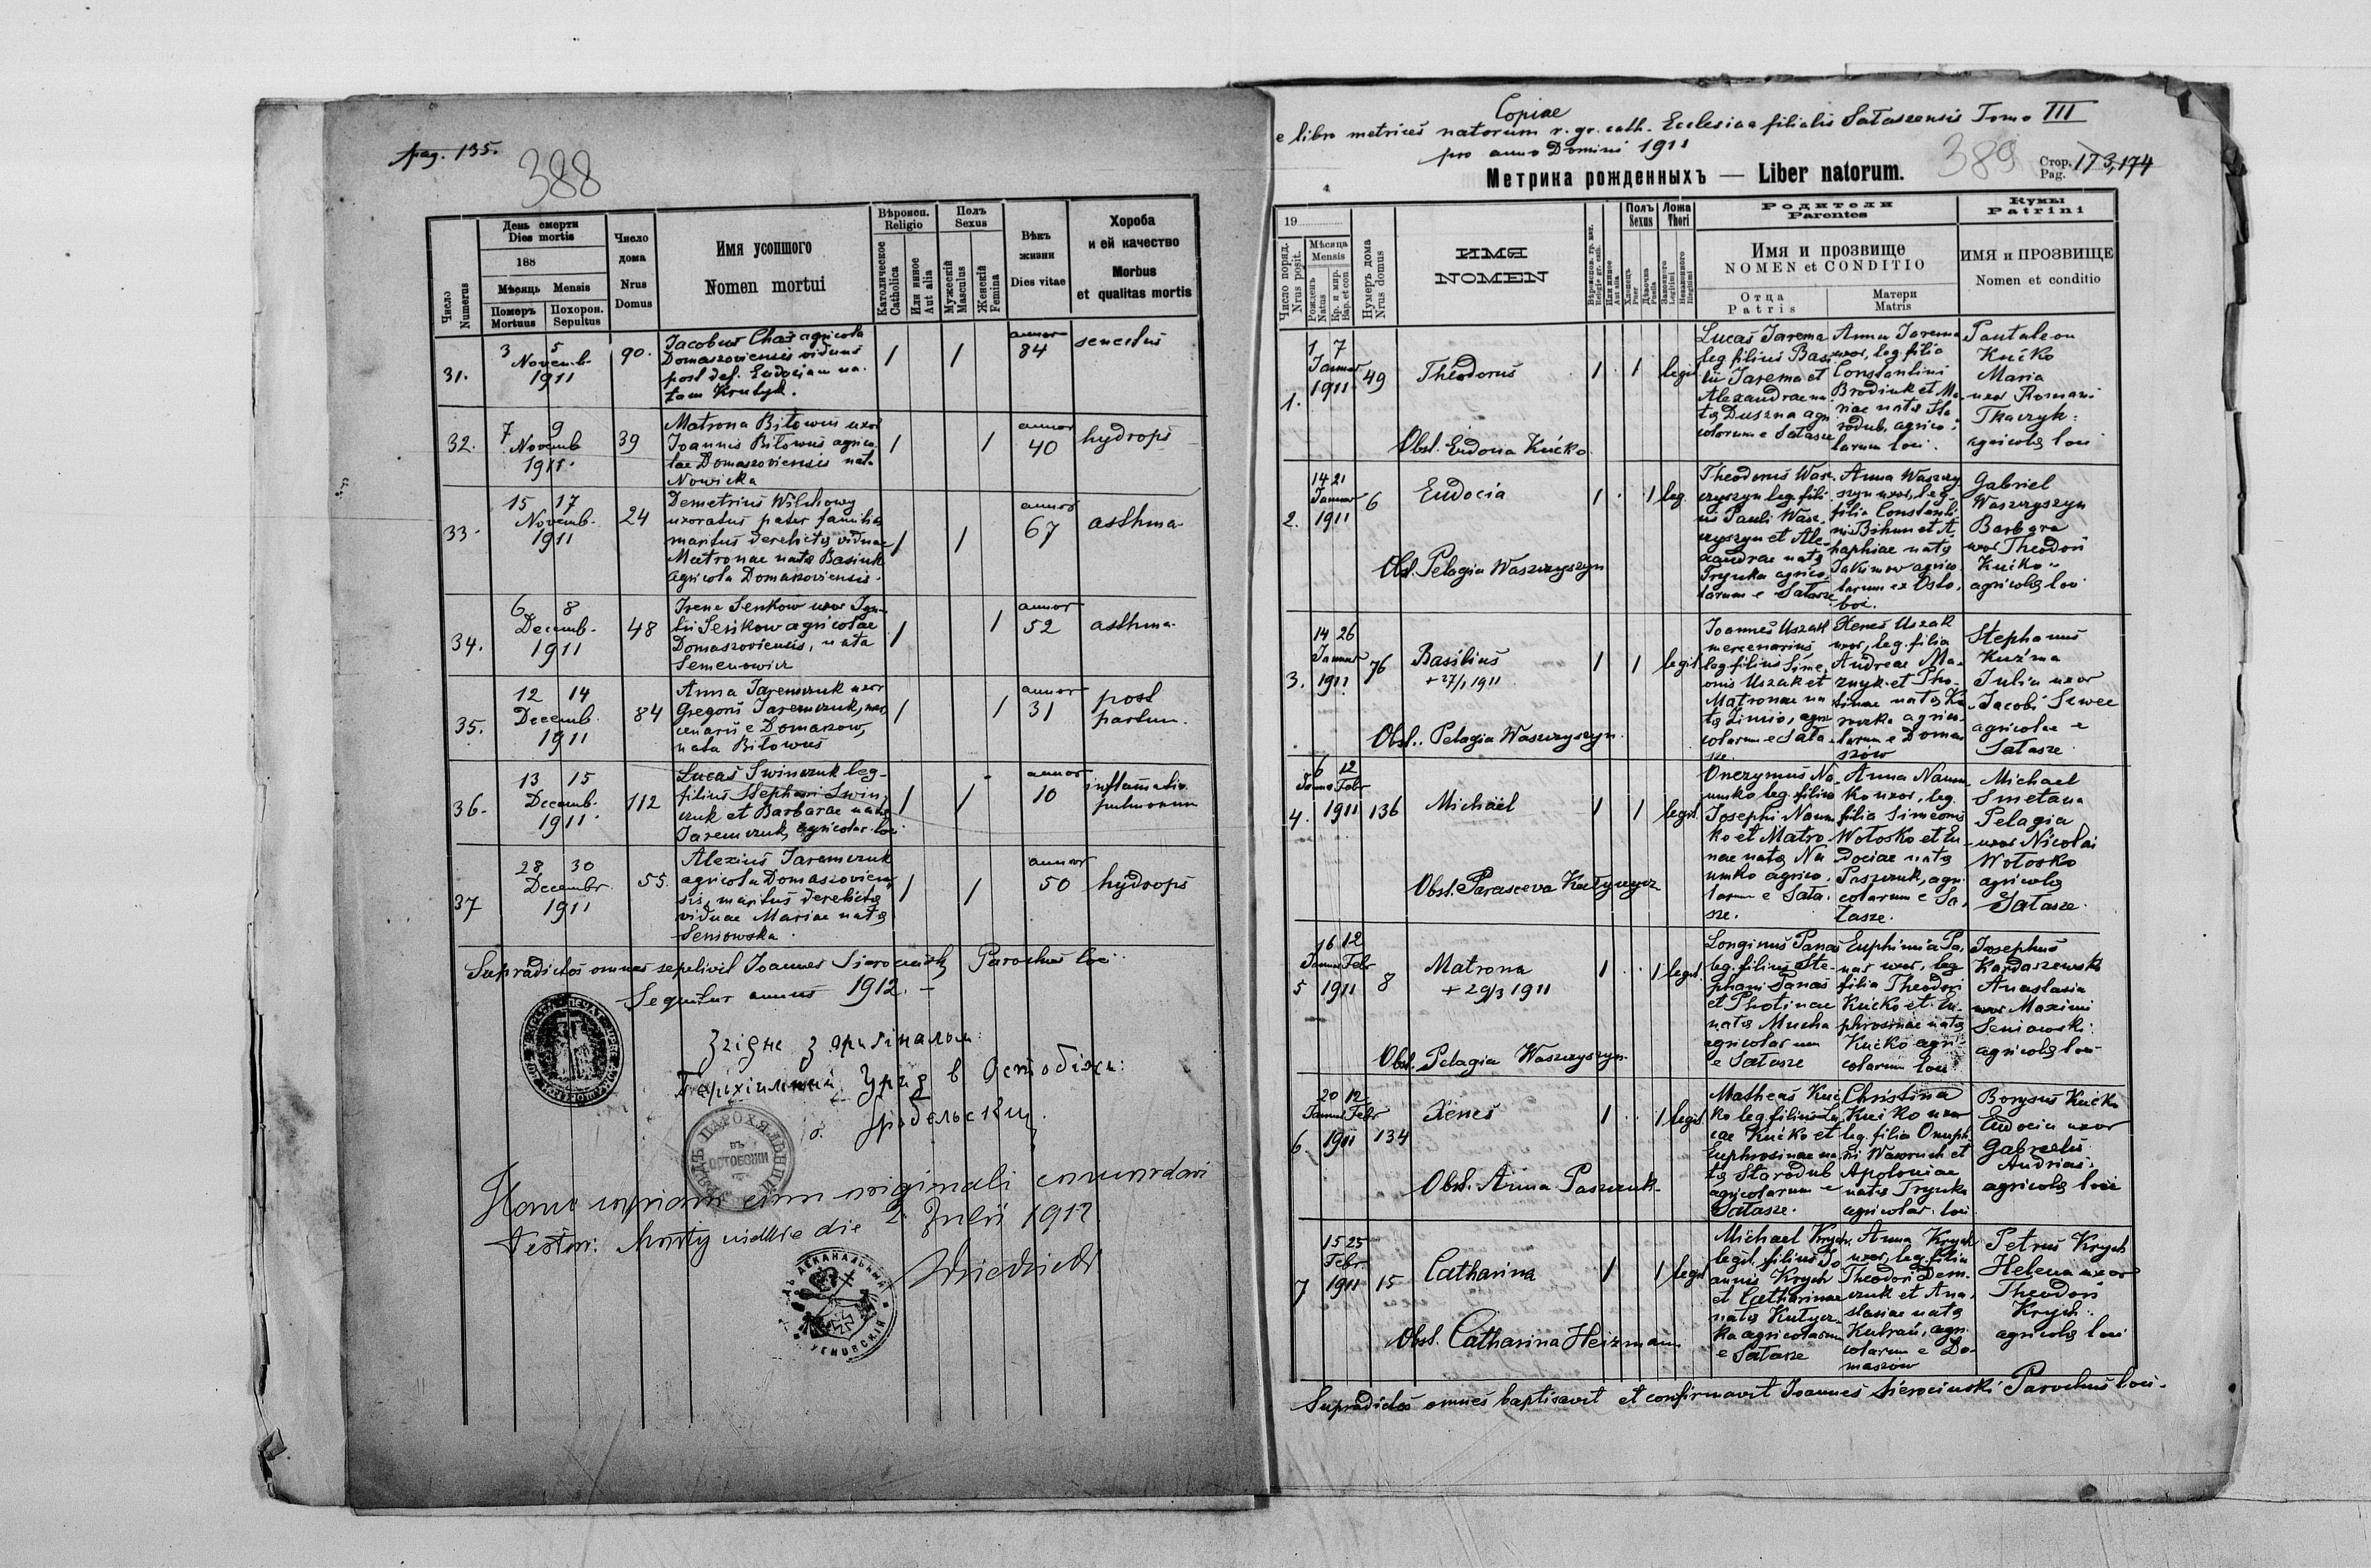 pag. 135.
388
Число
Numerus
День смерти
Dies mortis
188
Мѣсяць Mensis
Померъ
Mortuus
Похорон.
Sepultus
Число
дома
Nrus
Domus
Имя усопшого
Nomen mortui
Вѣроисп.
Religio
Католическое
Catholica
Или инное
Aut alia
Полъ
Sexus
Мужескій
Masculus
Женскій
Femina
Вѣкъ
жизни
Dies vitae
Хороба
и ей качество
Morbus
et qualitas mortis
31.
3 5
Novemb.
1911
90.
Jacobus Chaś agricola
Domaszoviensis viduus
post def. Eudociam na-
tam Krutyk.
1
1
annor
84
senectus
32.
7 9
Novemb
1911.
39
Matrona Biłowus uxor
Joannis Biłowus agrico-
lae Domaszoviensis nata
Nowicka
1
1
annor
40
hydrops
33.
15 17
Novemb.
1911
24
Demetrius Wilchowy
uxoratus pater familias
maritus derelictae viduae
Matronae natae Basiuk
agricola Domaszoviensis.
1
1
annor
67
asthma
34.
6 8
Decemb.
1911
48
Irene Seńkow uxor Igna-
tii Seńkow agricolae
Domaszoviensis, nata
Semenowicz
1
1
annor
52
asthma
35.
12 14
Decemb.
1911
84
Anna Jaremczuk uxor
Gregorii Jaremczuk, mer-
cenarii e Domaszow,
nata Biłowus
1
1
annor
31
post
partum.
36.
13 15
Decemb.
1911.
112
Lucas Swinczuk leg.
filius Stephani Swin-
czuk et Barbarae natae
Jaremczuk agricolar. loci
1
1
annor
10
inflamatio
pulmonum
37
28 30
Decembr.
1911
55.
Alexius Jaremczuk
agricola Domaszovien-
sis, maritus derelictae
viduae Mariae natae
Seniowska.
1
1
annor
50
hydrops
Supradictos omnes sepelivit Joannes Sierocinski Parochus loci.
Sequitur annus 1912. —
Згідне з оригіналом:
Парохіяльний Уряд в Остобіжи:
ОСТОБОЖИ
Hanc copiam cum originali concordari
testor: Mosty wielkie die 2 Julii 1912
Copiae
e libro metrices natorum r. gr. cath. Ecclesiae filialis Sałaszensis Tomo III
pro anno Domini 1911
389
Метрика рожденныхъ — Liber natorum.
Стор.
Pag. 173,174
4
19
Число поряд.
Nrus posit.
Мѣсяца
Mensis
Рожденъ
Natus
Кр. и мир.
Bap. et con
Нумеръ дома
Nrus domus
ИМЯ
NOMEN
Вѣроиспов. гр. кат.
Religio gr. cath.
Или инное
Aut alia
Полъ
Sexus
Хлопецъ
Puer
Дѣвочка
Puella
Ложа
Thori
Законного
Legitimi
Незаконного
Illegitimi
Родители
Parentes
Имя и прозвище
NOMEN et CONDITIO
Отца
Patris
Матери
Matris
Кумы
Patrini
ИМЯ и ПРОЗВИЩЕ
Nomen et conditio
1.
1 7
Januar
1911
49
Theodorus
Obst. Eudoxia Kućko.
1
1
legit.
Lucas Jarema
leg. filius Basi-
lii Jarema et
Alexandrae na-
tae Duszna agri-
colarum e Sałasze
Anna Jarema
uxor, leg. filia
Constantini
Brodiuk et Ma-
riae natae Sta-
rodub, agrico-
larum loci.
Pantaleon
Kućko
Maria
uxor Romani
Tkaczyk:
agricolae loci
2.
14 21
Januar
1911
6
Eudocia
Obst. Pelagia Waszczyszyn
1
1
leg.
Theodorus Wasz-
czyszyn leg. fili-
us Pauli Wasz-
czyszyn et Ale-
xandrae natae
Trynka agrico-
larum e Sałasze
Anna Waszczy-
szyn uxor, leg.
filia Constanti-
ni Bihun et A-
haphiae natae
Jakimow agrico-
larum ex Osto-
boż.
Gabriel
Waszczyszyn
Barbara
uxor Theodori
Kućko
agricolae loci
3.
14 26
Januar
1911
76
Basilius
+ 27/1 1911
Obst. Pelagia Waszczyszyn.
1
1
legit.
Joannes Uszak
mercenarius
leg. filius Sime-
onis Uszak et
Matronae na-
tae Zimio, agri-
colarum e Sała-
sze.
Xenes Uszak
uxor, leg. filia
Andreae Ma-
znyk et Pho-
tinae natae Ka-
agrico-
larum e Domas-
szów
Stephanus
Kuźma
Julia uxor
Jacobi Szwec
agricolae e
Sałasze.
4.
6 12
Janu. Febr
1911
136
Michael
Obst. Parasceva
1
1
legit.
Onezymus Na-
umko leg. filius
Josephi Naum-
ko et Matro-
nae natae Na-
umko agrico-
larum e Sała-
sze.
Anna Naum-
ko uxor, leg.
filia Simeonis
Wołosko et Eu-
dociae natae
Paszczuk, agri-
colarum e Sa-
łasze.
Michael
Smetana
Pelagia
uxor Nicolai
Wołosko
agricolae
Sałasze.
5
16 12
Januar Febr
1911
8
Matrona
+ 29/3 1911
Obst. Pelagia Waszczyszyn
1
1
legit.
Longinus Panas
leg. filius Ste-
phani Panas
et Photinae
natae Mucha
agricolarum
e Sałasze
Euphimia Pa-
nas uxor, leg
filia Theodori
Kućko et Eu-
phrosinae natae
Kućko agri-
colarum loci
Josephus
Kardaszewski
Anastasia
uxor Maximi
Seniowski.
agricolae loci
6.
20 12
Januar Febr
1911
134
Xenes
Obst. Anna Paszczuk
1
1
legit.
Matheas Kuć-
ko leg. filius Lu-
cae Kućko et
Euphrosinae na-
tae Starodub
agricolarum e
Sałasze.
Christina
Kućko uxor
leg. filia Onuph-
rii Waworuch et
Apoloniae
natae Trynka
agricolar. loci
Borysus Kućko
Eudocia uxor
Gabrielis
Andrias.
agricolae loci
7
15 25
Febr.
1911
15
Catharina
Obst. Catharina Heizmann
1
1
legit
Michael Krych
legit. filius Jo-
annis Krych
et Catharinae
natae Kutycz-
ka agricolarum
e Sałasze
Anna Krych
uxor, leg. filia
Theodori Dem-
czuk et Ana-
stasiae natae
Kutrań, agri-
colarum e Do-
maszów
Petrus Krych
Helena uxor
Theodori
Krych.
agricolae loci
Supradictos omnes baptisavit et confirmavit Joannes Sierocinski Parochus loci.